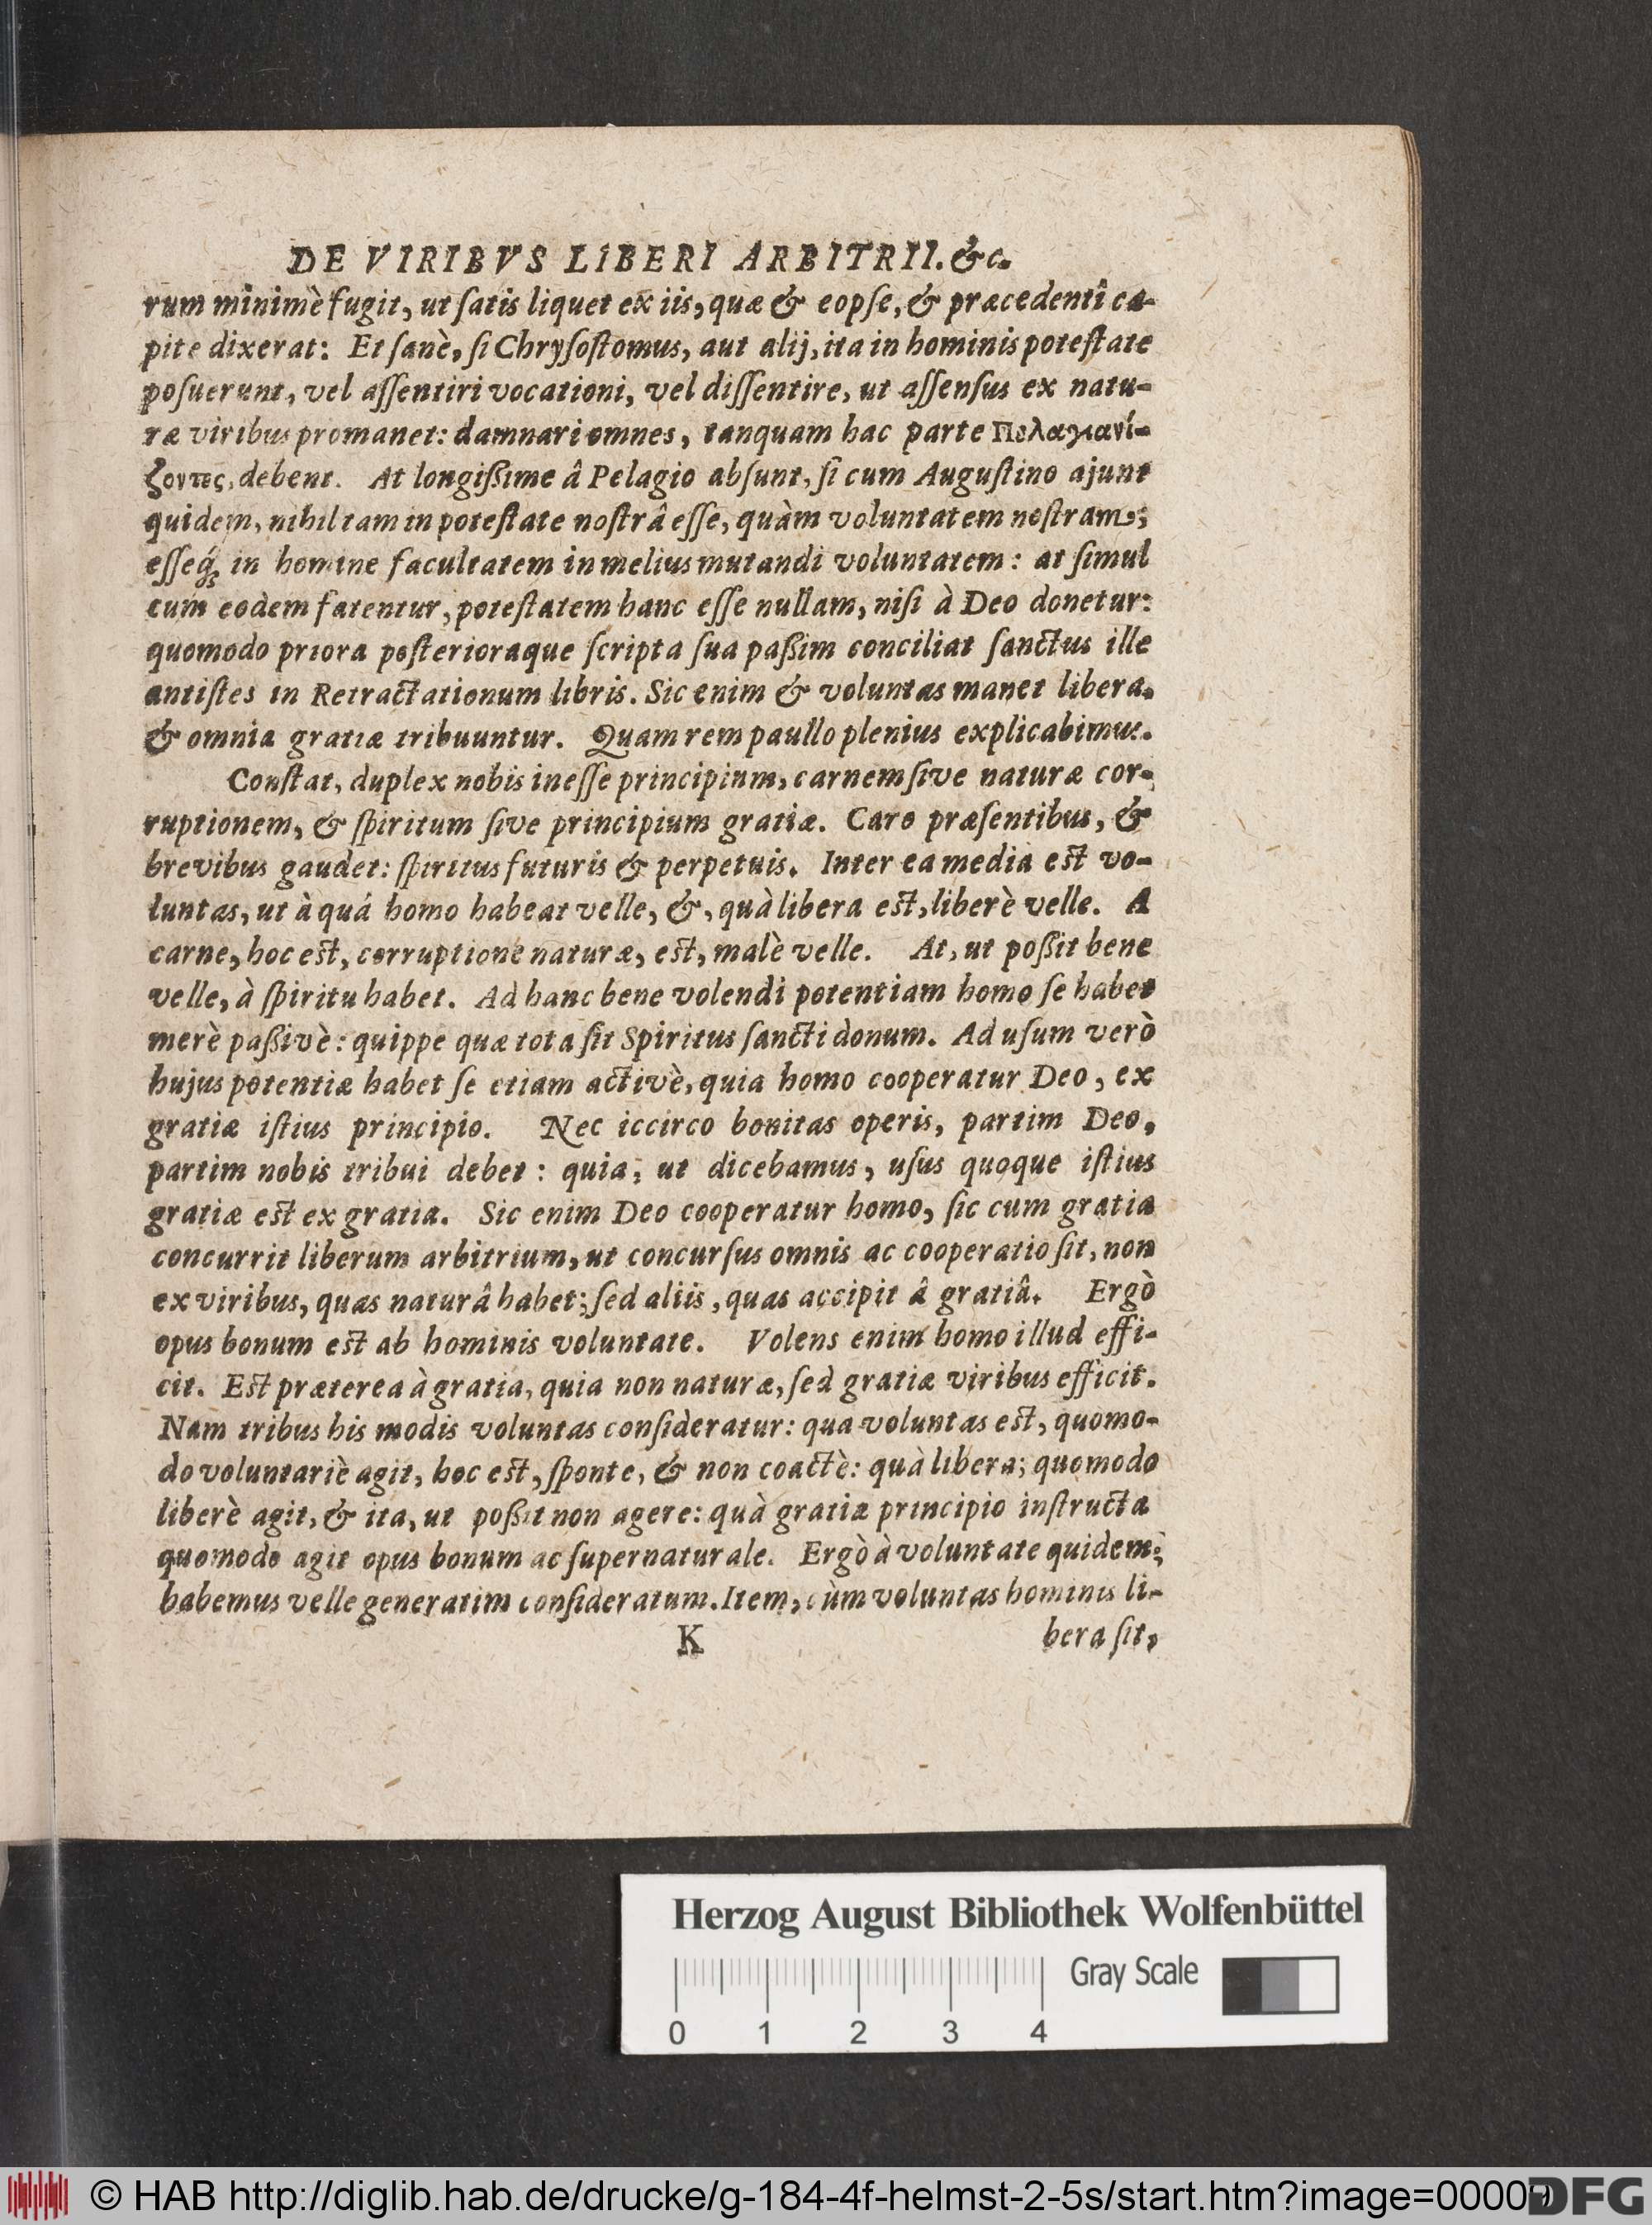 DE VIRIBVS LIBERI ARBITRII. &c.
rum minimè fugit, ut ſatis liquet ex iis, quæ & eopſe, & præcedenti ca-
pite dixerat: Et ſanè, ſi Chryſoſtomus, aut alij, ita in hominis poteſtate
poſuerunt, vel aſſentiri vocationi, vel diſſentire, ut aſſenſus ex natu-
ræ viribus promanet: damnari omnes, tanquam hac parte Πελαγιανί-
ζοντες, debent. At longißime â Pelagio abſunt, ſi cum Auguſtino ajunt
quidem, nihil tam in poteſtate noſtrâ eſſe, quàm voluntatem noſtram;
eſſeq́; in homine facultatem in melius mutandi voluntatem: at ſimul
cum eodem fatentur, poteſtatem hanc eſſe nullam, niſi à Deo donetur:
quomodo priora poſterioraque ſcripta ſua paßim conciliat ſanctus ille
antiſtes in Retractationum libris. Sic enim & voluntas manet libera,
& omnia gratiæ tribuuntur. Quam rem paullo plenius explicabimus.
Conſtat, duplex nobis ineſſe principium, carnem ſive naturæ cor-
ruptionem, & ſpiritum ſive principium gratiæ. Caro præſentibus, &
brevibus gaudet: ſpiritus futuris & perpetuis. Inter ea media est vo-
luntas, ut à quá homo habeat velle, &, quà libera est, liberè velle. A
carne, hoc est, corruptione naturæ, est, malè velle. At, ut poßit bene
velle, à ſpiritu habet. Ad hanc bene volendi potentiam homo ſe habet
merè paßivè: quippe quæ tota ſit Spiritus ſancti donum. Ad uſum verò
hujus potentiæ habet ſe etiam activè, quia homo cooperatur Deo, ex
gratiæ iſtius principio. Nec iccirco bonitas operis, partim Deo,
partim nobis tribui debet: quia, ut dicebamus, uſus quoque iſtius
gratiæ est ex gratia. Sic enim Deo cooperatur homo, ſic cum gratia
concurrit liberum arbitrium, ut concurſus omnis ac cooperatio ſit, non
ex viribus, quas naturâ habet; ſed aliis, quas accipit â gratiâ. Ergò
opus bonum est ab hominis voluntate. Volens enim homo illud effi-
cit. Est præterea à gratia, quia non naturæ, ſed gratiæ viribus efficit.
Nam tribus his modis voluntas conſideratur: qua voluntas est, quomo-
do voluntariè agit, hoc est, ſponte, & non coactè: quà libera; quomodo
liberè agit, & ita, ut poßit non agere: quà gratiæ principio inſtructa
quomodo agit opus bonum ac ſupernaturale. Ergò à voluntate quidem;
habemus velle generatim conſideratum. Item, cùm voluntas hominis li-
K bera ſit,
Herzog August Bibliothek Wolfenbüttel
Gray Scale
0 1 2 3 4
© HAB http://diglib.hab.de/drucke/g-184-4f-helmst-2-5s/start.htm?image=00009
DFG